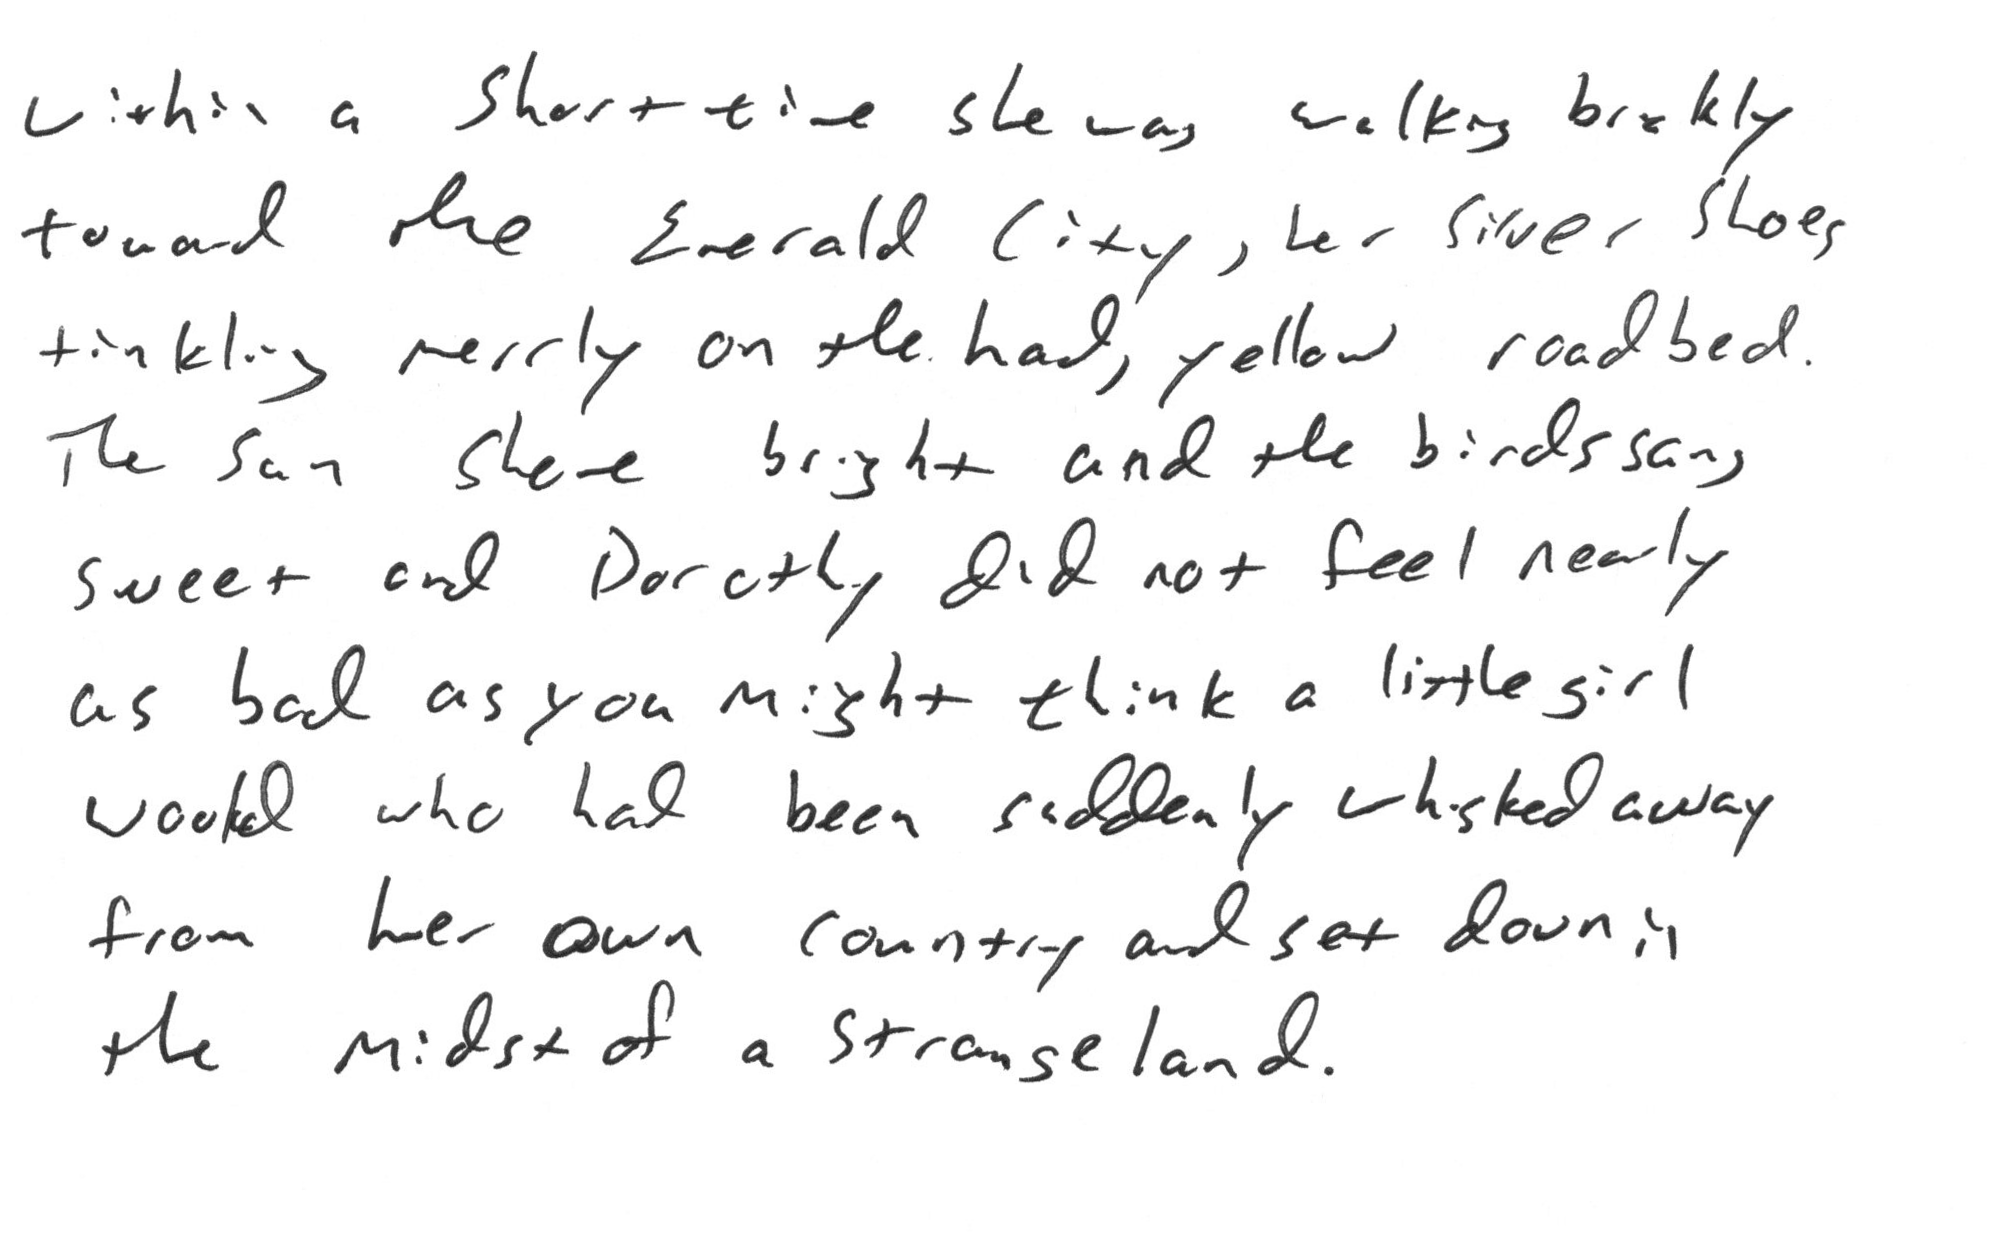 within a short time she was walking briskly
toward the Emerald City, her Silver Shoes
tinkling merrily on the hard, yellow roadbed.
The sun shone bright and the birds sang
sweet and Dorothy did not feel nearly
as bad as you might think a little girl
would who had been suddenly whisked away
from her own country and set down in
the midst of a strange land.